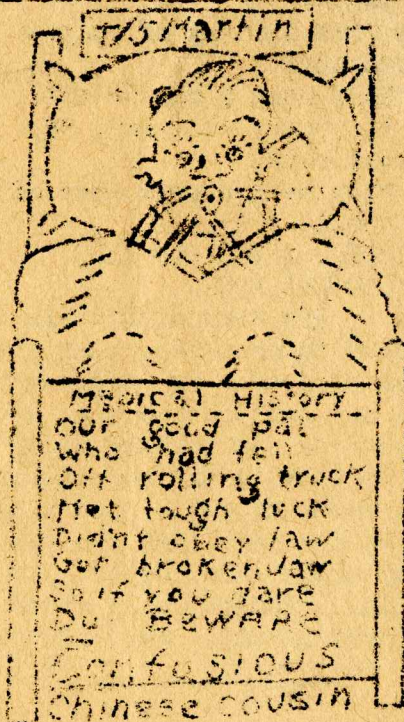 T/5 Martin
Medical History
our good pal
who had fell
Off rolling truck
Met tough luck
Didn't obey law
Got broken jaw
So if you dare
Du BEWARE
Confusious
Chinese cousin